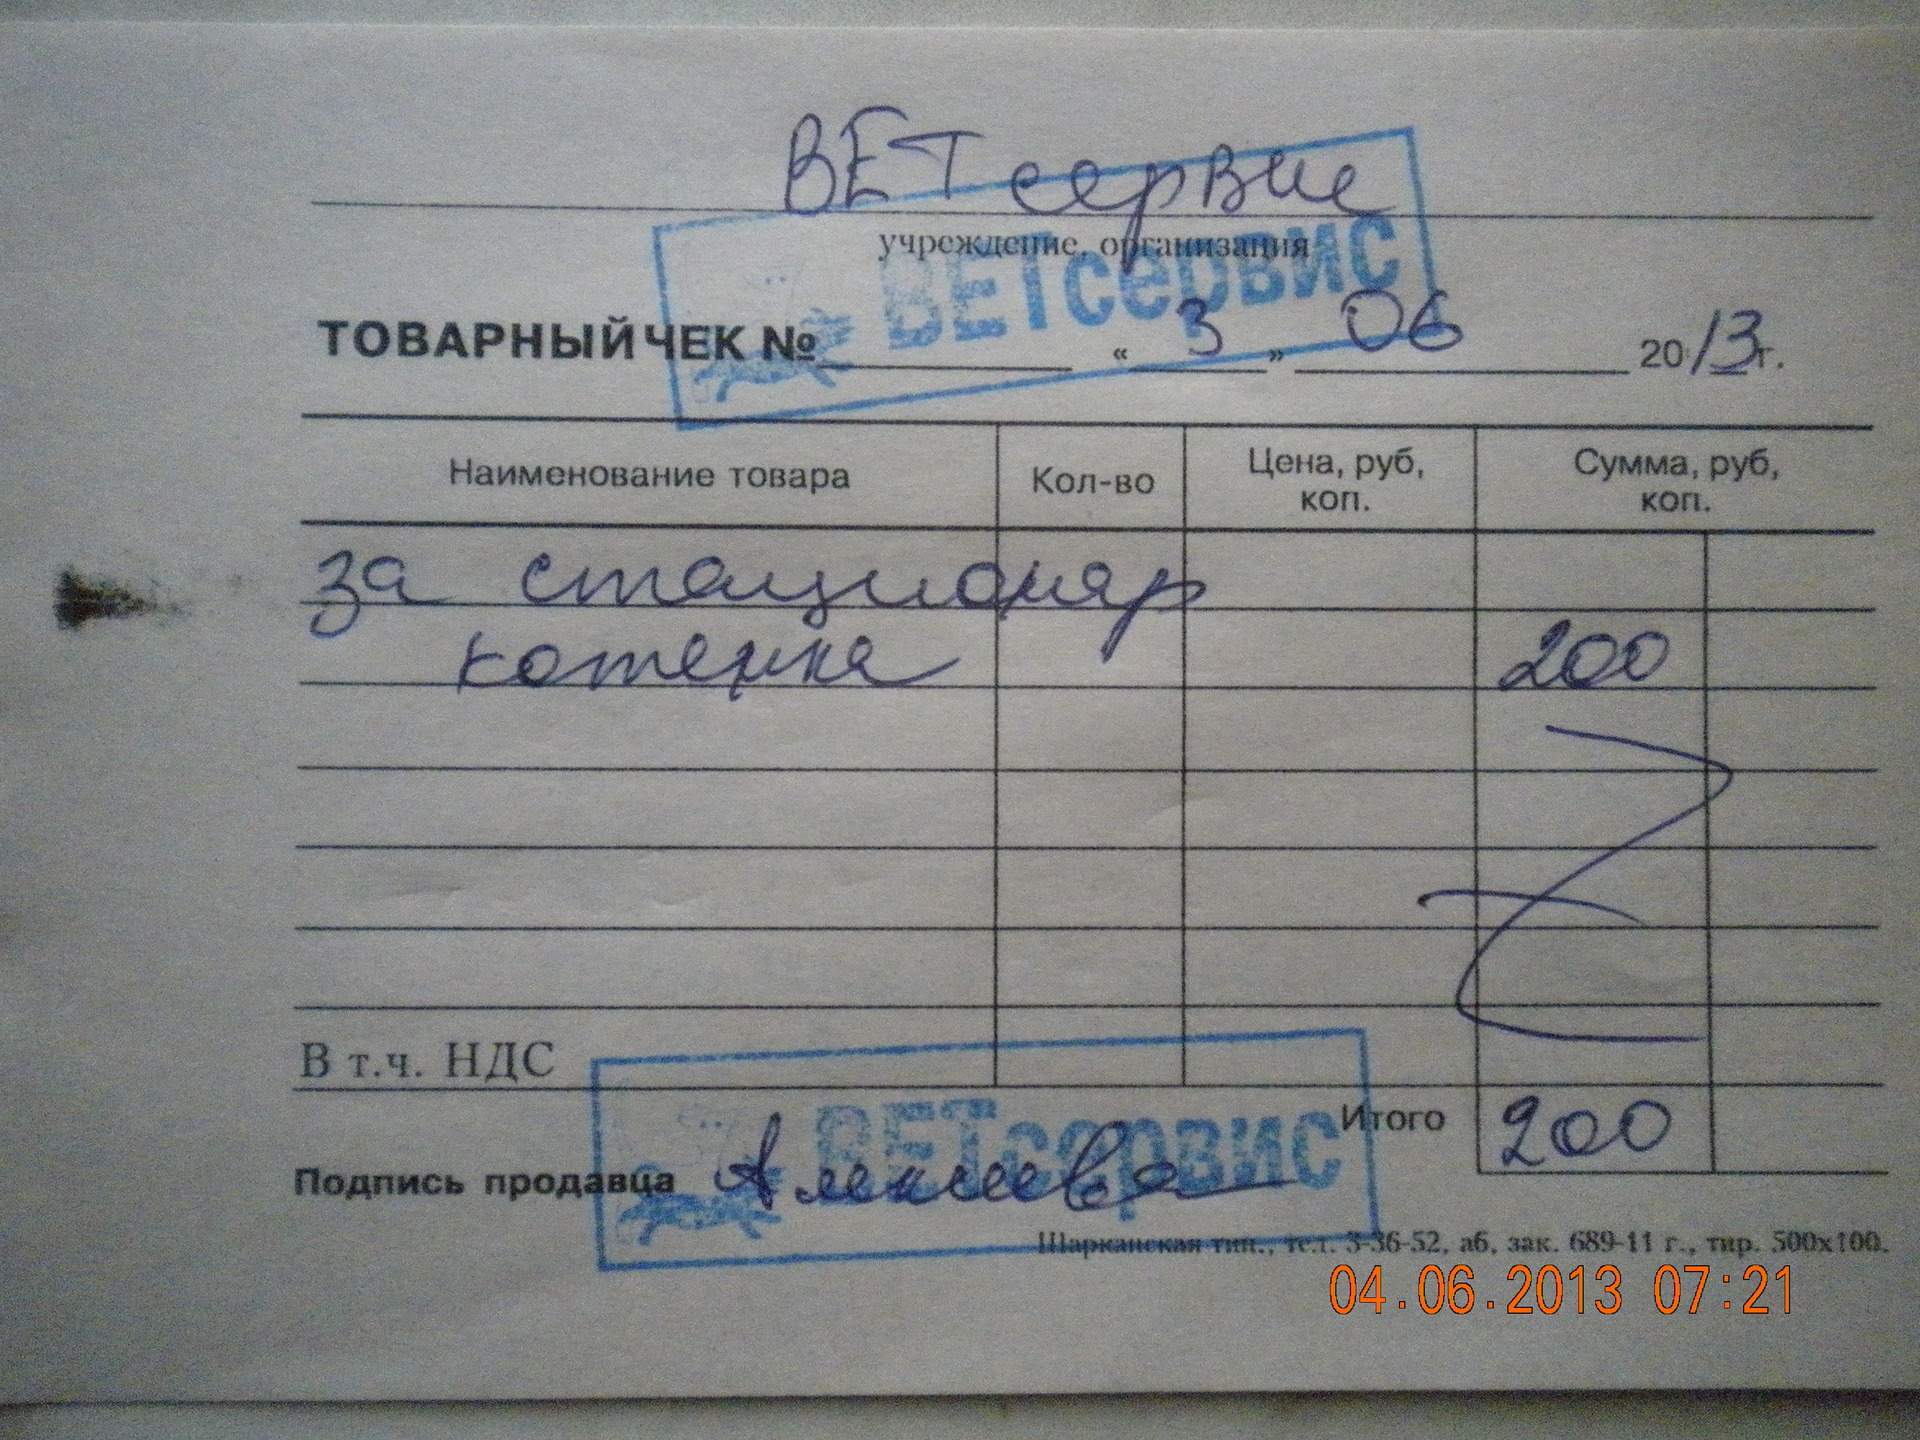 ВЕТ сервис
учреждение, организация
ВЕТсервис
ТОВАРНЫЙ ЧЕК № « 3 » 06 2013г.
Наименование товара Кол-во Цена, руб, коп. Сумма, руб, коп.
за стационар
котенка 200
В т.ч. НДС
Итого 200
ВЕТсервис
Подпись продавца Алексеева
Шарканская тип., тел. 3-36-52, а6, зак. 689-11 г., тир. 500х100.
04.06.2013 07:21